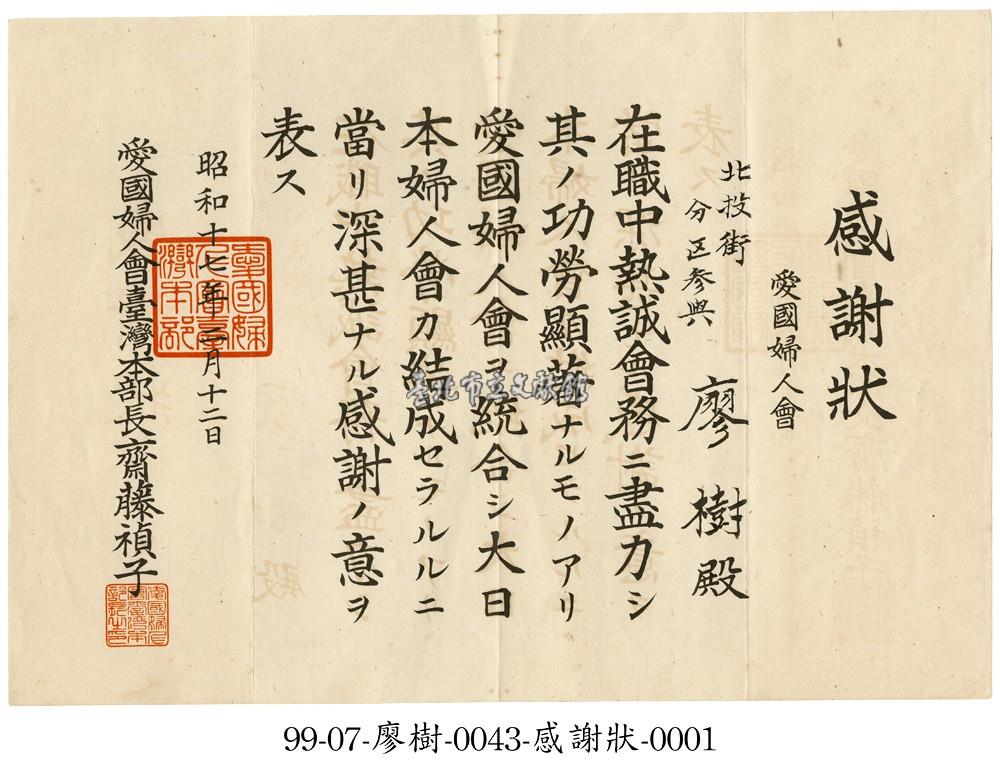 感謝狀
愛國婦人會
北投街
分区参與
廖樹殿
在職中熱誠會務ニ盡力シ
其ノ功勞顯著ナルモノアリ
愛國婦人會ヲ統合シ大日
本婦人會カ結成セラルルニ
當リ深甚ナル感謝ノ意ヲ
表ス
昭和十七年三月十二日
愛國婦人會臺灣本部長齋藤禎子
臺北市立文獻館
99-07-廖樹-0043-感謝狀-0001